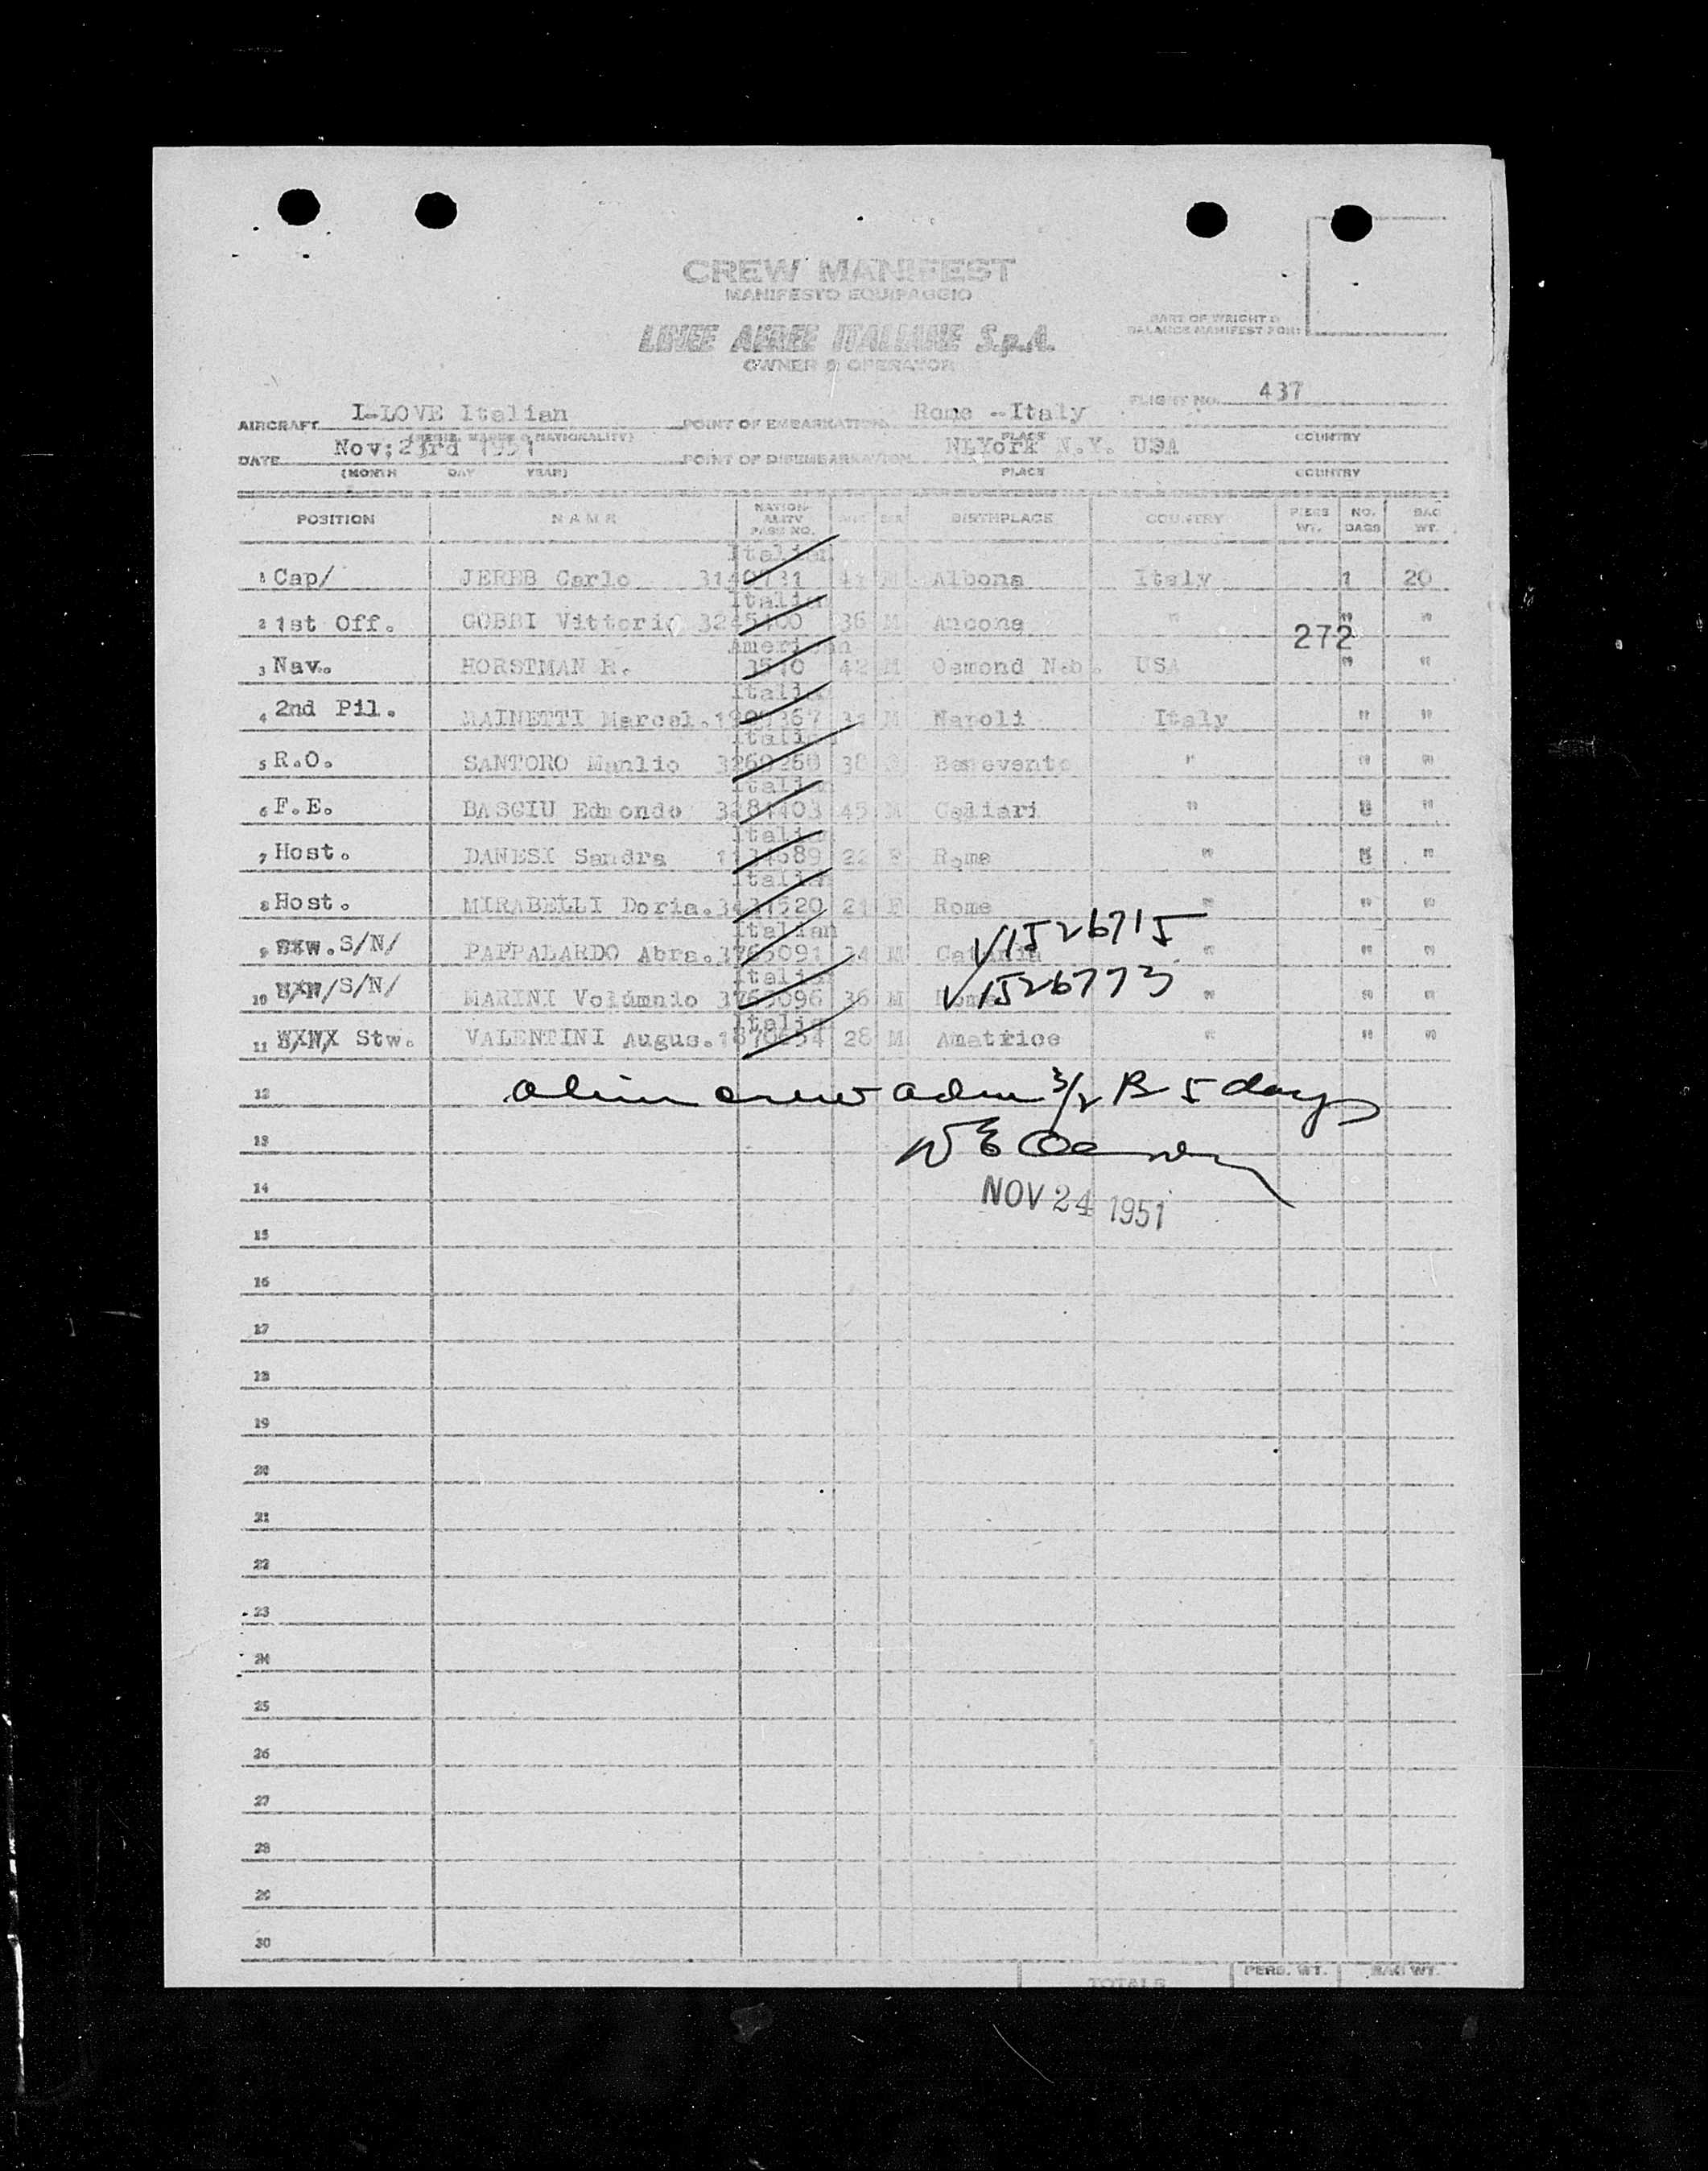 CREW MANIFEST
MANIFESTO EQUIPAGGIO
LINEE AEREE ITALIANE S.p.A.
OWNER & OPERATOR
PART OF WEIGHT &
BALANCE MANIFEST FOR:
FLIGHT NO. 437
AIRCRAFT I-LOVE Italian POINT OF EMBARKATION Rome --Italy
(REGIS. MARKS & NATIONALITY) PLACE COUNTRY
DATE Nov;23rd 1951 POINT OF DISEMBARKATION N.York N.Y. USA
(MONTH DAY YEAR) PLACE COUNTRY
POSITION NAME NATION-ALITY PASS NO. AGE SEX BIRTHPLACE COUNTRY PERS WT. NO. BAGS BAG WT.
Italian
1 Cap/ JEREB Carlo M Albona Italy 1 20
Italian
2 1st Off. GOBBI Vittorio 36 M Ancona " " "
272
American
3 Nav. HORSTMAN R. 42 M Osmond Neb. USA " "
Italian
4 2nd Pil. MAINETTI Marcel. M Napoli Italy " "
Italian
5 R.O. SANTORO Manlio 38 Benevento " " "
Italian
6 F.E. BASCIU Edmondo 45 M Cagliari " " "
Italian
7 Host. DANESI Sandra 22 F Rome " " "
Italian
8 Host. MIRABELLI Doria. 21 F Rome " " "
Italian V1526715
9 Stw. S/N/ PAPPALARDO Abra. 3765091 34 M Catania " " "
Italian V1526773
10 S/N/ MARINI Volumnio 3765096 36 M Roma " " "
Italian
11 Stw. VALENTINI Augus. 28 M Amatrice " " "
12 alien crew adm 3/2 B 5 days
13
14 NOV 24 1951
15
16
17
18
19
20
21
22
23
24
25
26
27
28
29
30
TOTALS PERS. WT. BAG WT.